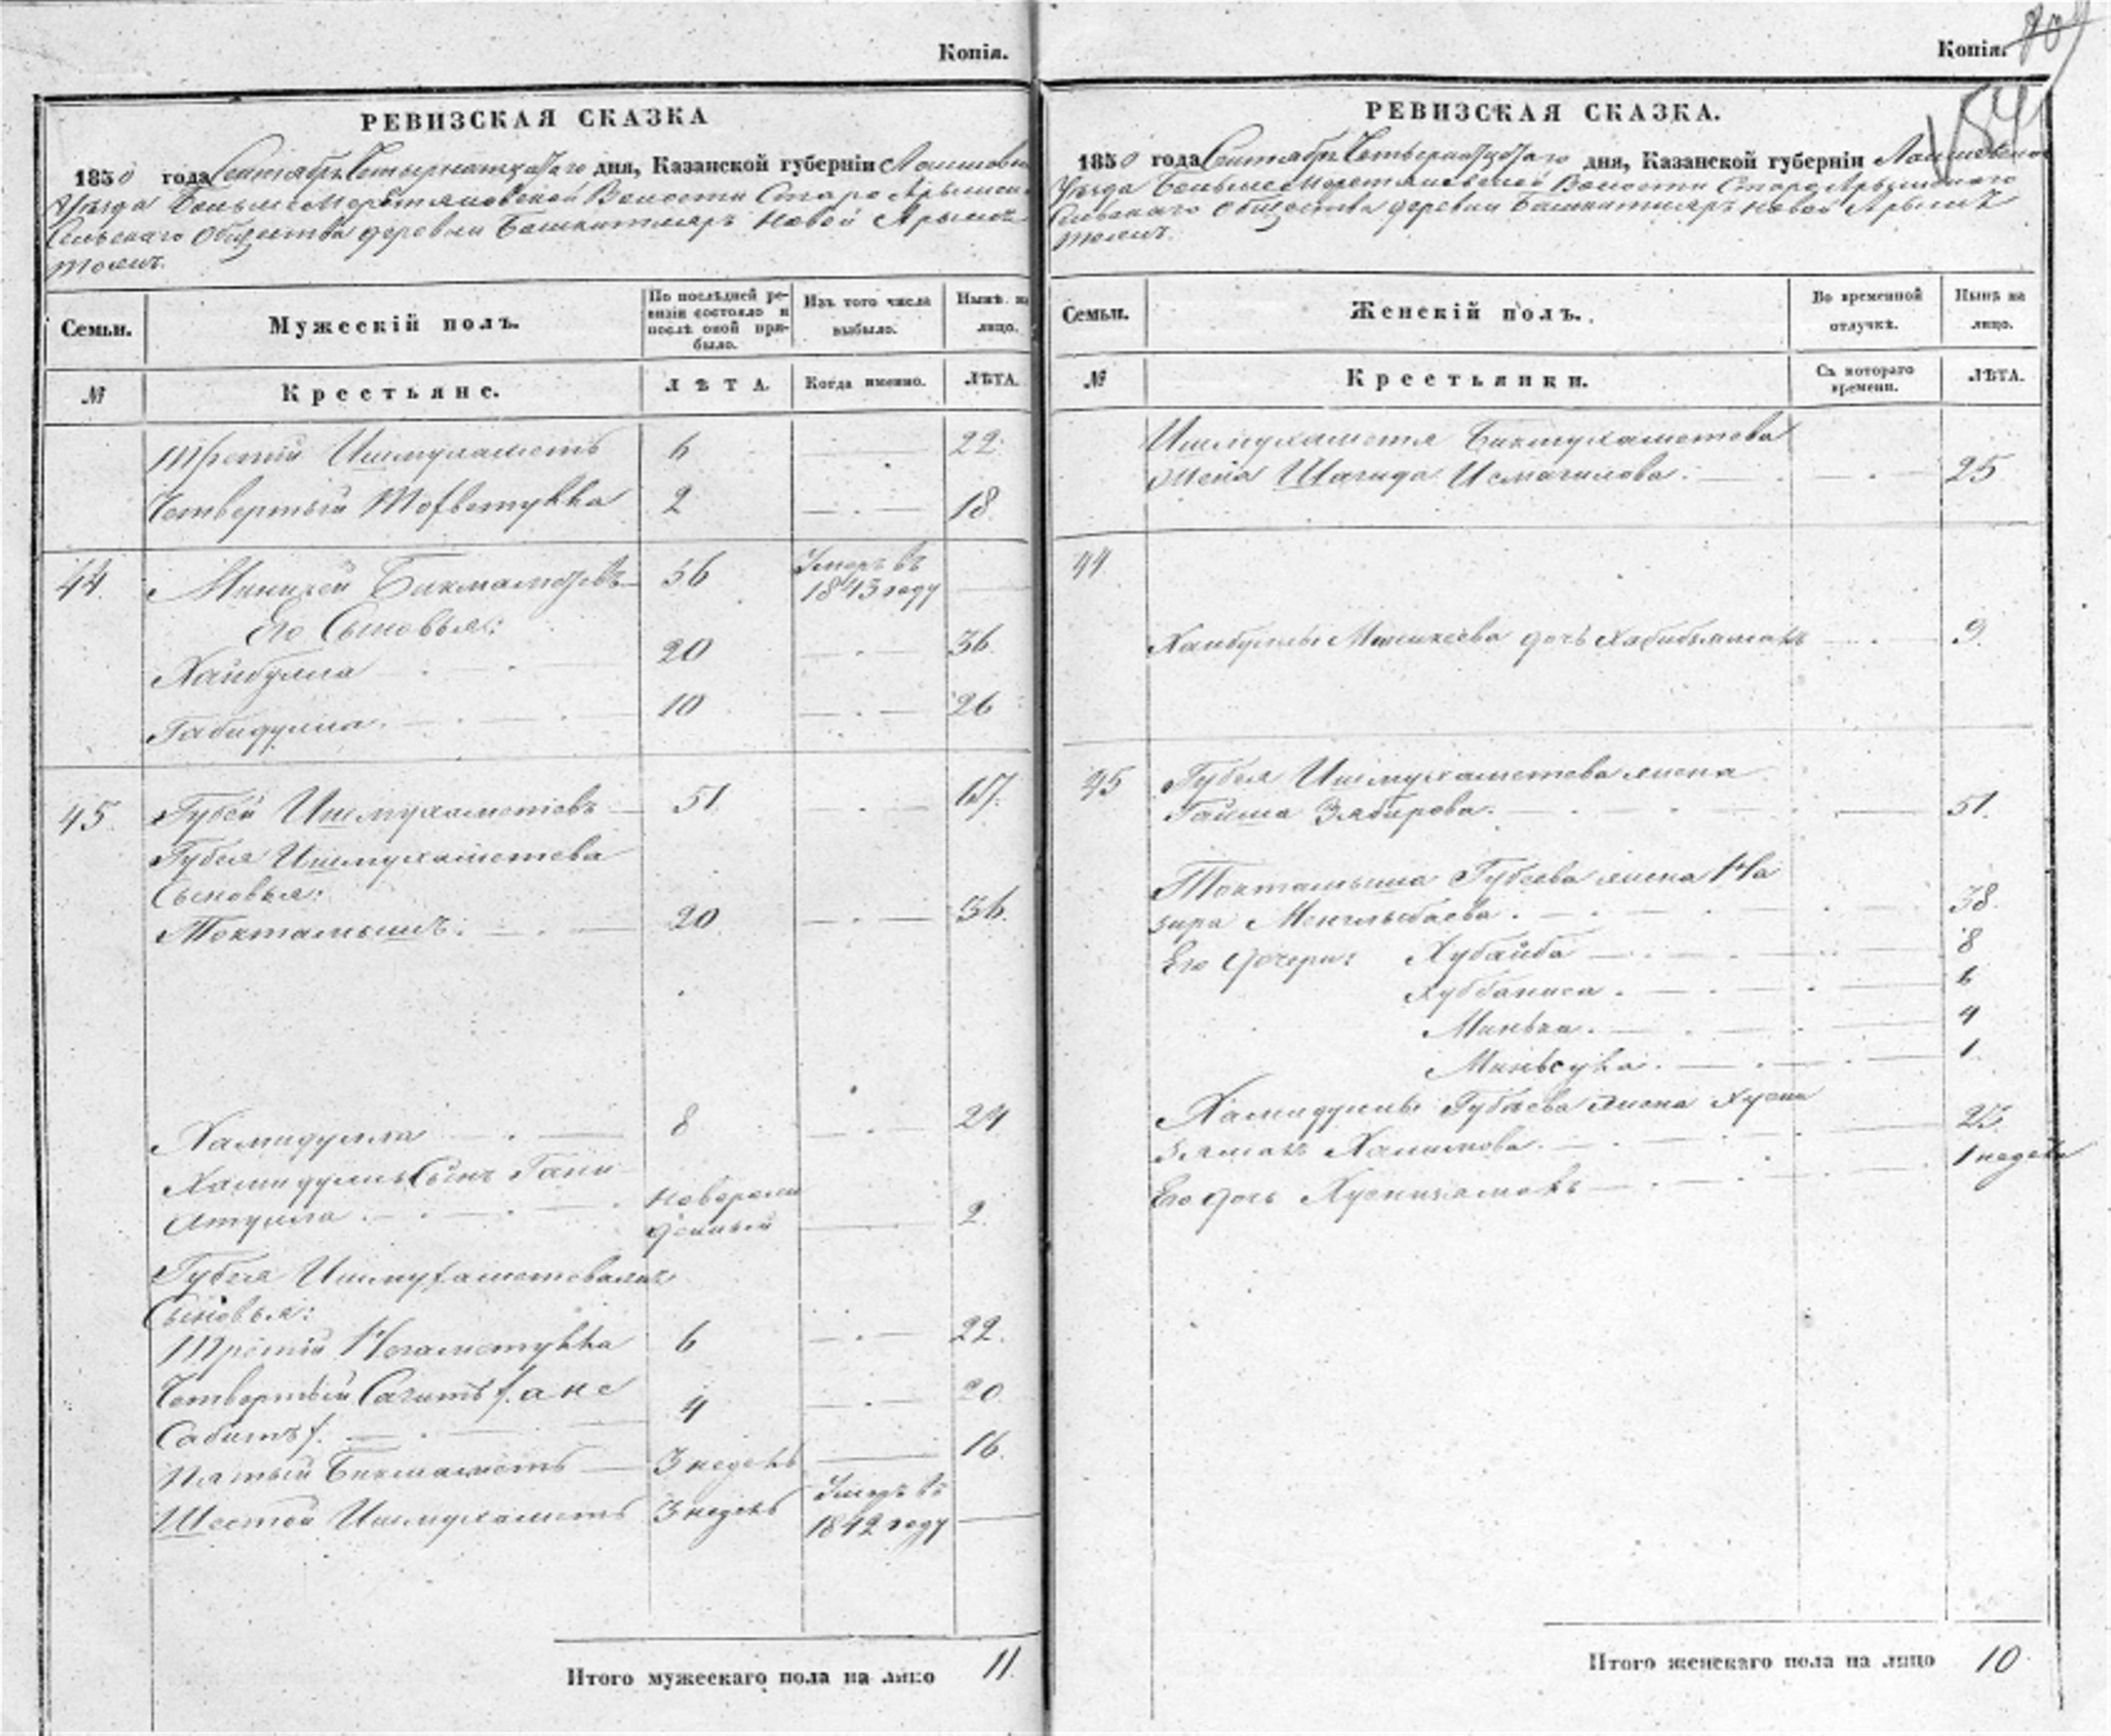 Копія.
РЕВИЗСКАЯ СКАЗКА
1850 года Сентября Четырнатцатаго дня, Казанской губерніи Лаишевска
Уѣзда Волости Старо Арышска
Сельскаго Общества деревни Башкитляръ Новой Арышъ
тожъ.
Семьи.
Мужескій полъ.
По послѣдней ре-
визіи состояло и
послѣ оной при-
было.
Изъ того числа
выбыло.
Нынѣ на
лицо.
№
Крестьяне.
ЛѢТА.
Когда именно.
ЛѢТА.
Третій Ишмухаметъ 6 22.
Четвертый 2 18.
44. Бикмаметевъ 56 Умеръ въ
1843 году
Его Сыновья:
Хайбулла 20 36.
Габидулла. 10 26
45. Губей Ишмухаметевъ 51 67.
Губея Ишмухаметева
Сыновья:
Токтамышъ. 20 36.
Хамидулла 8 24
Хамидуллы Сынъ Гани
атулла. новорож
денный 2.
Губея Ишмухаметева
Сыновья:
Третій 6 22.
Четвертый Сагитъ, а не
Сабитъ. 4 20
Пятый Бикмаметъ 3 недель 16.
Шестой Ишмухаметъ 3 недель Умеръ въ
1842 году
Итого мужескаго пола на лицо 11.
Копія.
РЕВИЗСКАЯ СКАЗКА.
1850 года Сентября Четырнатцатаго дня, Казанской губерніи Лаишевской
Уѣзда Волости Старо Арышскаго
Сельскаго Общества деревни Башкитляръ Новой Арышъ
тожъ.
Семьи.
Женскій полъ.
Во временной
отлучкѣ.
Нынѣ на
лицо.
№
Крестьянки.
Съ котораго
времени.
ЛѢТА.
Ишмухаметя Бикмухаметова
жена Шагида Исмагилова. 25
44
Хайбуллы Миникеева дочь Хабибзямалъ 9.
45 Губея Ишмухаметева жена
Гайша Зябирова. 51.
Токтамыша Губеева жена На
зира Менглыбаева. 38.
Его дочери: Хубайба 8
Хуббаниса. 6
4
1.
Хамидуллы Губаева жена Хусни
зямалъ Халимова. 23.
1 недель
Его дочь
Итого женскаго пола на лицо 10